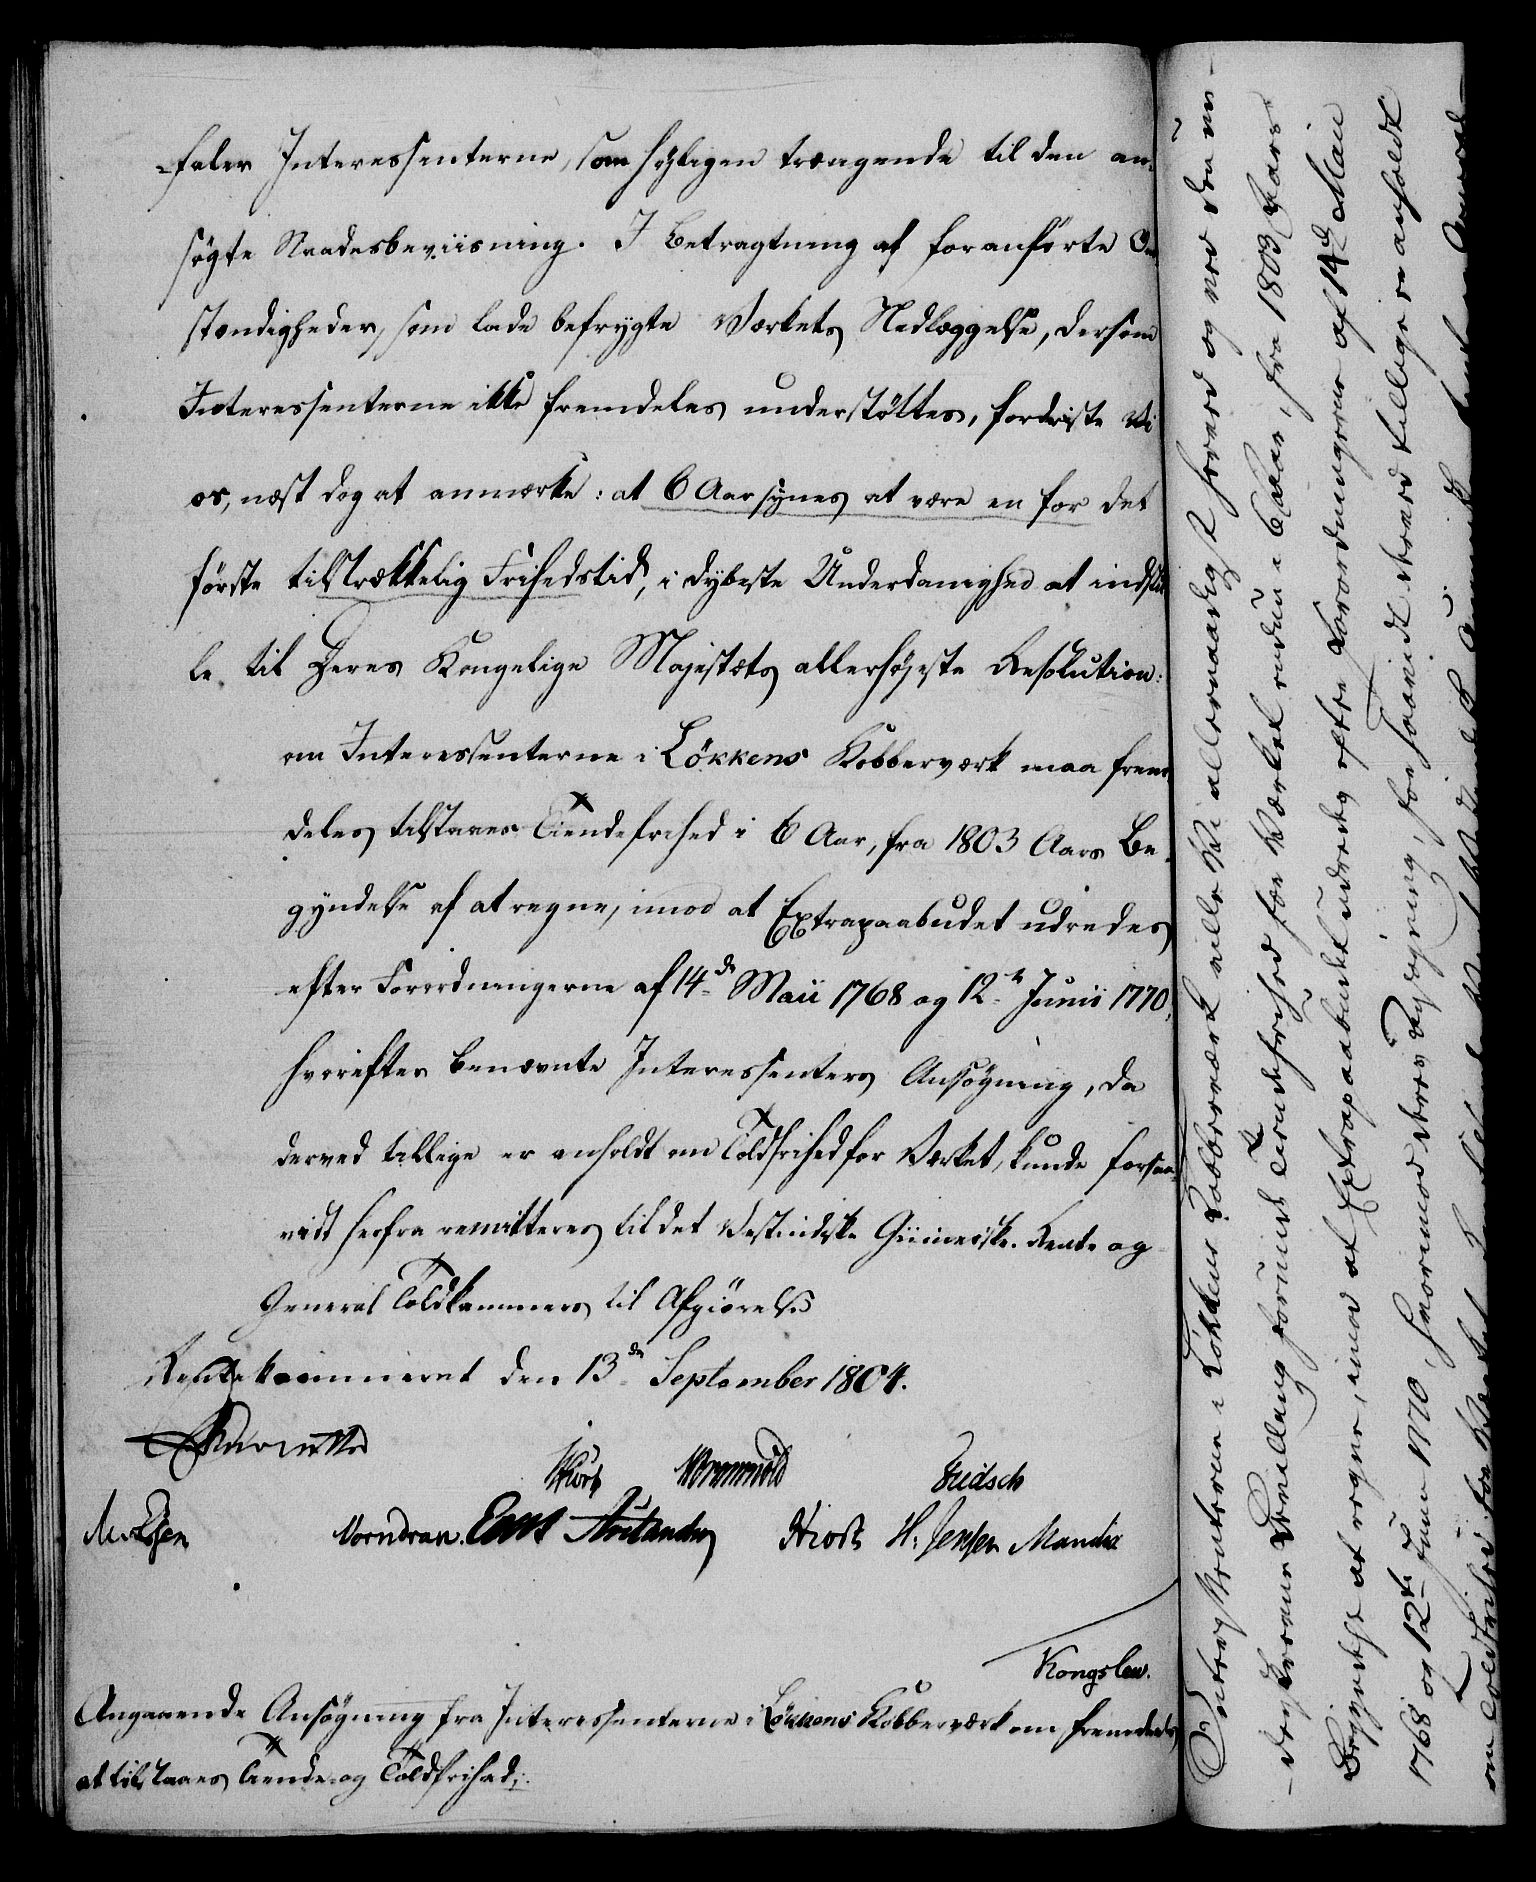 -faler Interessenterne, som høyligen trængende til den an-
søgte Naadesbeviisning. I Betragtning af foranførte Om-
stændigheder, som lade befrygte Værkets Nedlæggelse, dersom
Interessenterne ikke fremdeles understøttes, fordriste Vi
os, næst dog at anmærke: at 6 Aar synes at være en for det
første tilstrækkelig Frihedstid, i dybeste Underdanighed at indstil-
le til Deres Kongelige Majestæts allerhøjeste Resolution:
om Interessenterne i Løkkens Kobberværk maa frem-
deles tilstaaes Tiendefrihed i 6 Aar, fra 1803 Aars Be-
gyndelse af at regne, imod at Extrapaabudet udredes
efter Forordningerne af 14de Maii 1768 og 12te Junii 1770,
hvorefter benævnte Interessenters Ansøgning, da
derved tillige er anholdt om Toldfrihed for Værket, kunde forsaa-
vidt herfra remitteres til det Vestindiske Guineiske Rente og
General Toldkammers til Afgiørelse
Rentekammeret den 13de September 1804.
Wormskiold Fridsch
Vorndran. Hiort H. Jensen Mandix
Kongslew.
Angaaende Ansøgning fra Interessenterne i Løkkens Kobberværk om fremdeles
at tilstaaes Tiende og Toldfrihed.
Interessenterne i Løkkens Kobberværk ville Vi allernaadigst hermed og ved den un-
der forunt Tiendefrihed for Værket endnu i 6 Aar, fra 1803 Aars
Begyndelse at regne, imod at Extrapaabudet udredes efter Forordningerne af 14de Maii
1768 og 12te Junii 1770, hvorimod deres Ansøgning, for saavidt derved tillige er anholdt
om Toldfrihed for Værket,